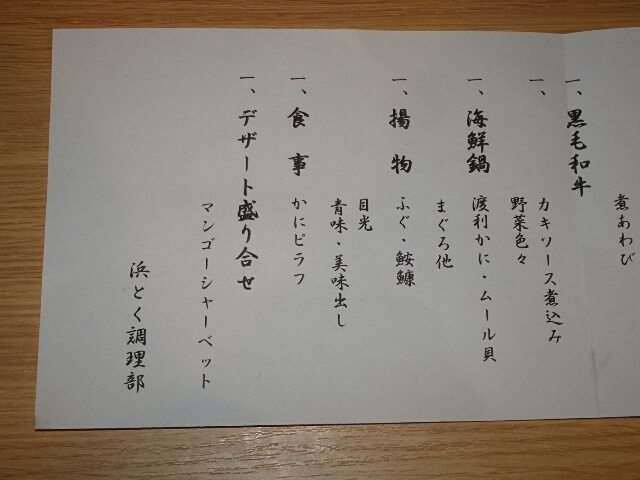 煮あわび
一、黒毛和牛
一、
カキソース煮込み
野菜色々
一、海鮮鍋
渡利かに・ムール貝
まぐろ他
一、揚物
ふぐ・鮟鱇
目光
青味・美味出し
一、食事
かにピラフ
一、デザート盛り合せ
マンゴーシャーベット
浜とく調理部